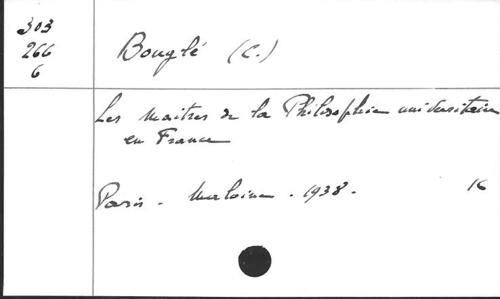 303
266
6
Bouglé (C.)
Les Maitres de la Philosophie universitaire
en France
Paris. Maloine. 1938. 16